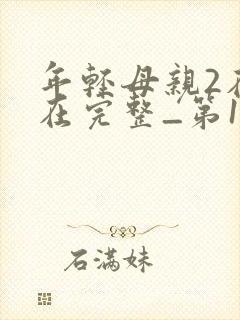 年輕母親2在
在完整_第1
石滿妹